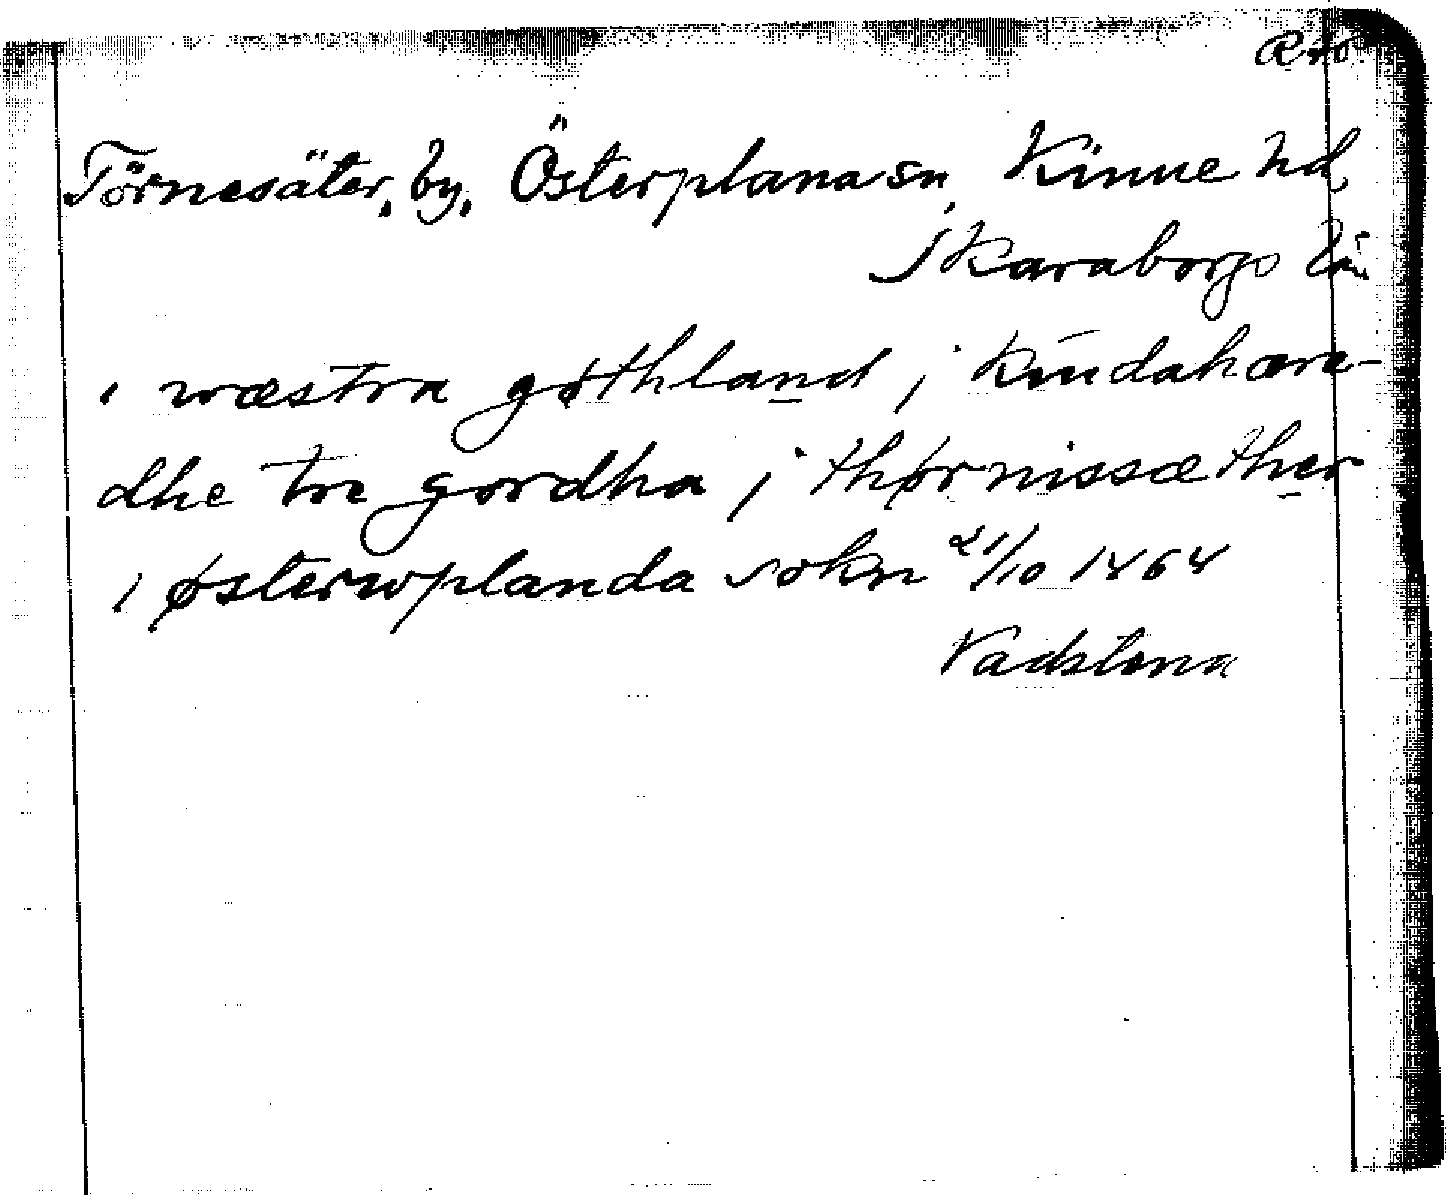 Rao
Törnesäter, by, Österplana sn, Kinne hd,
Skaraborgs län
i wæstra gøthland j kindahære-
dhe tre gordha j thørnissæther
i østerwplanda sokn 21/10 1464
Vadstena